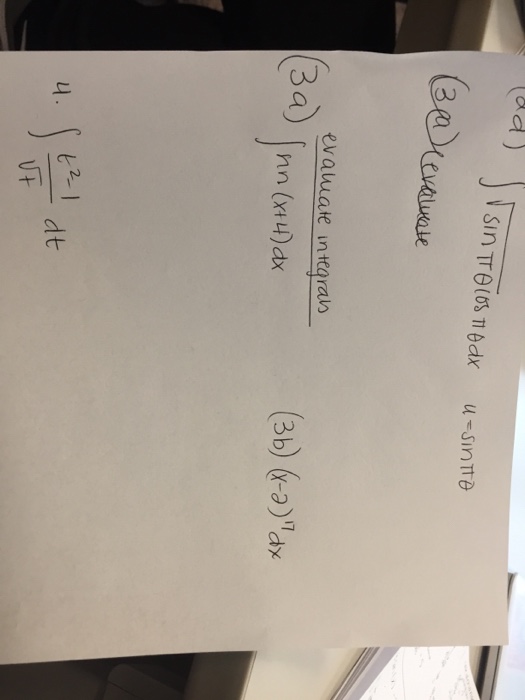 2d) ∫ √sin πθ cos πθ dx u = sin πθ
(3a) evaluate
evaluate integrals
(3a) ∫ nn (x+4) dx (3b) (x-2)¹⁷ dx
4. ∫ t²-1 / √t dt